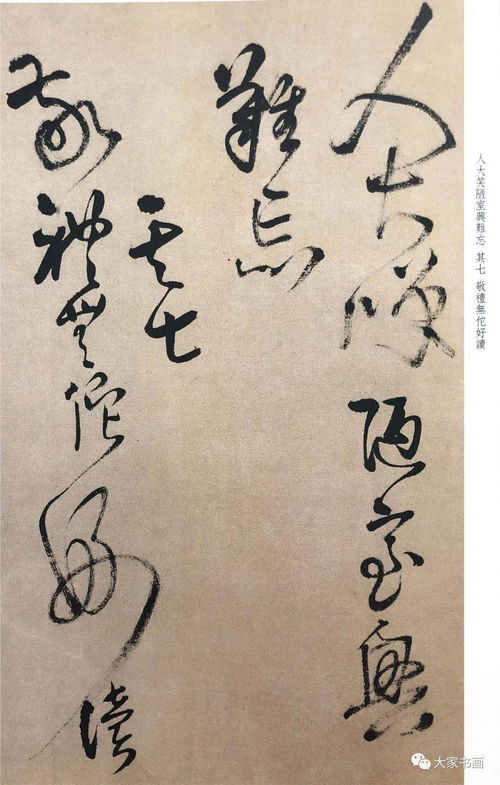 人大笑陋室興難忘 其七 敬禮無佗好讀
人大笑陋室興
難忘
其七
敬禮無佗好讀
大家书画